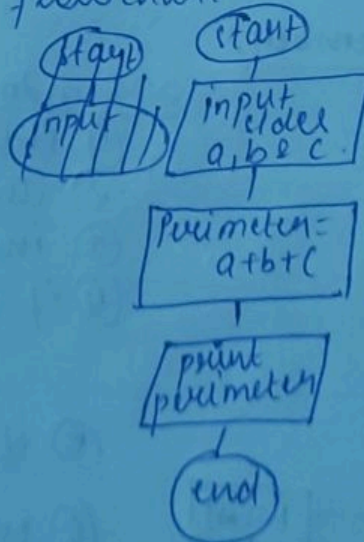 start
input
start
input
sides
a, b & c.
Perimeter =
a+b+c
print
perimeter
end